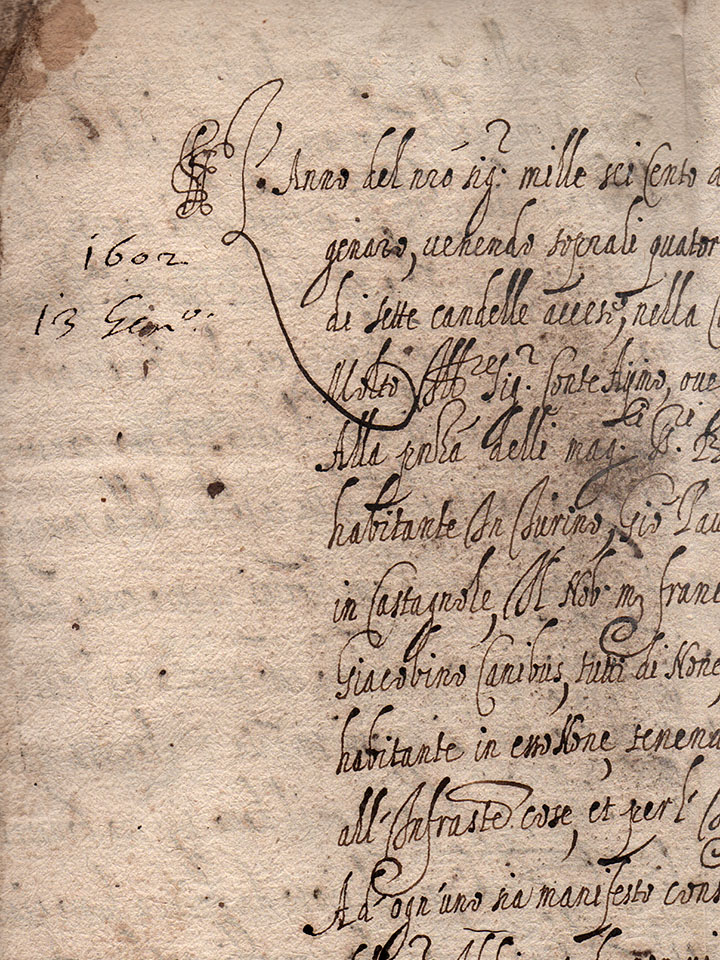 L'Anno del nro sig.r mille sei Cento d
1602
genaro, venendo sopra li quator
13 Gen.o:
di sette candelle accese, nella C
Molto Ill.re Sig.r Conte Aymo, oue
Alla pnza delli mag.ci
habitante In Turino, Gio Pau
in Castagnole, Il Nob. m. frane
Giacobino Canibus, tutti di None,
habitante in esso None, tenenu
all'Infraste cose, et per l'
Ad'ogn'uno sia manifesto cons